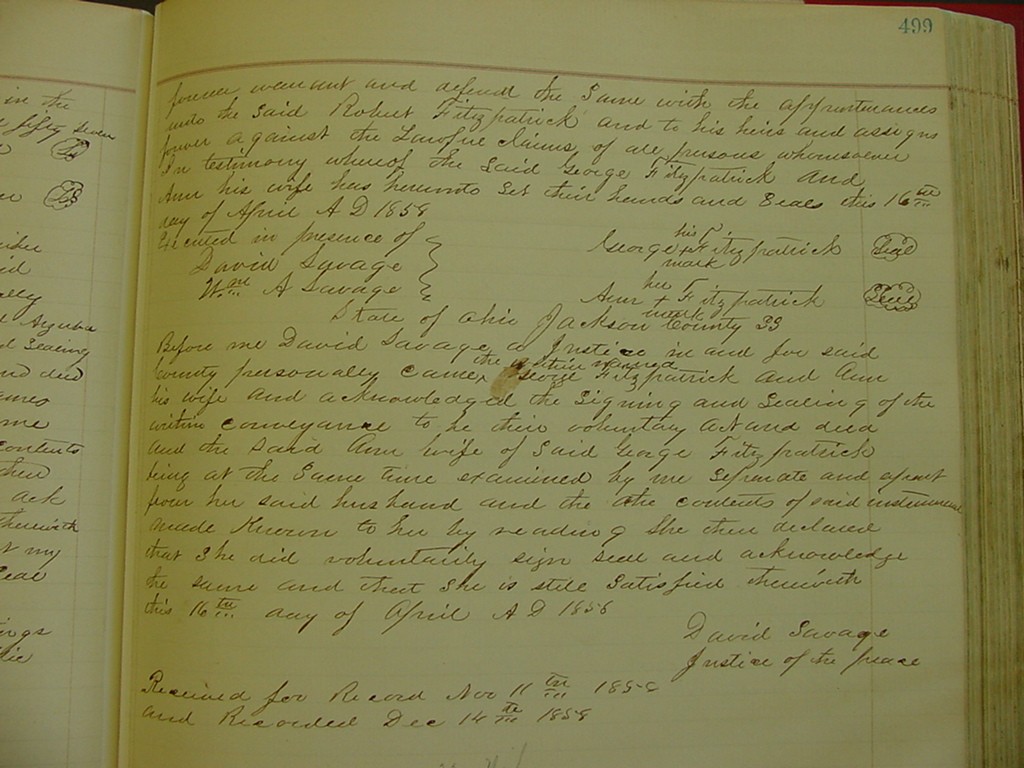 499
forever warrant and defend the Same with the appurtenances
unto the Said Robert Fitzpatrick and to his heirs and assigns
forever against the Lawful claims of all persons whomsoever
In testimony whereof the Said George Fitzpatrick and
Ann his wife has hereunto Set their hands and Seals this 16th
day of April A D 1858
Executed in presence of
David Savage
Wm A Savage
his
George + Fitzpatrick Seal
mark
her
Ann + Fitzpatrick Seal
mark
State of Ohio Jackson County SS
Before me David Savage a Justice in and for said
County personally came the within named George Fitzpatrick and Ann
his wife and acknowledged the Signing and Sealing of the
within conveyance to be their voluntary act and deed
and the Said Ann wife of Said George Fitzpatrick
being at the Same time examined by me Seperate and apart
from her said husband and the the contents of said instrument
made Known to her by reading She then declared
that She did voluntarily sign seal and acknowledge
the same and that She is still Satisfied therewith
this 16th day of April A D 1858
David Savage
Justice of the peace
Received for Record Nov 11th 1858
and Recorded Dec 14th 1858
in the
fifty seven
ally
d Sealing
and deed
ames
me
contents
then
ack
therewith
my
Seal